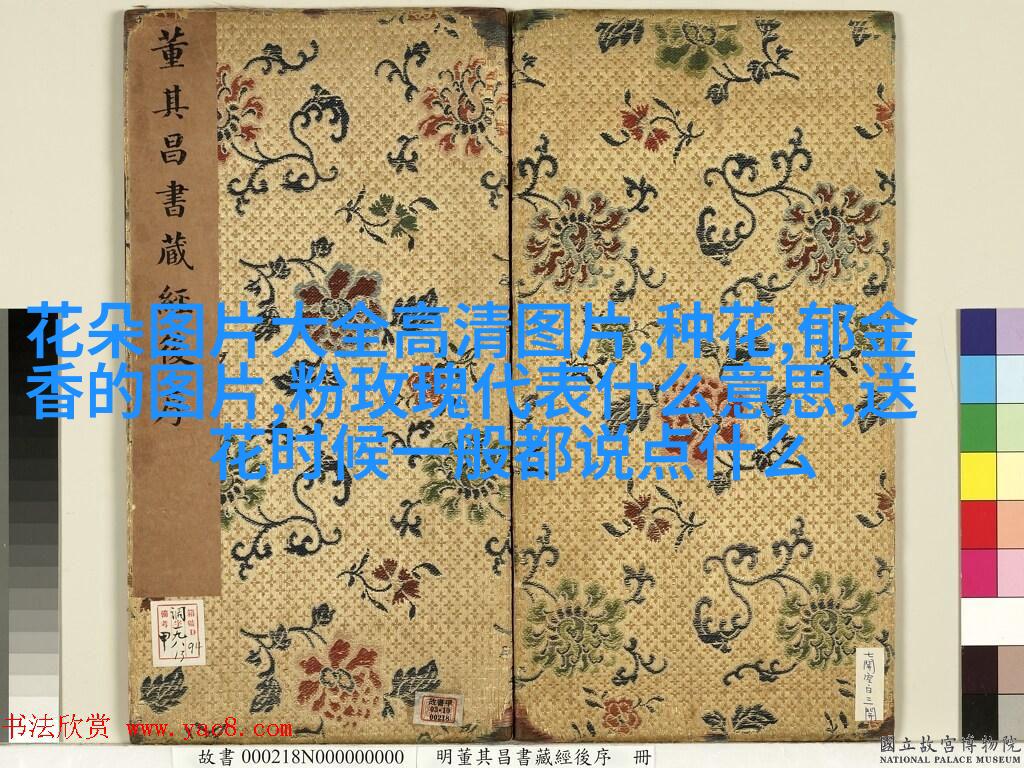 董其昌書藏經後序
花朵图片大全高清图片,种花,郁金
香的图片,粉玫瑰代表什么意思,送
花时候一般都说点什么
箱號D
備考
调一九八
甲 13 94
故書甲
03-10
00218
七開空白三開
书法欣赏 www.yac8.com
故書 000218N000000000
明董其昌書藏經後序 冊
國立故宮博物院
NATIONAL PALACE MUSEUM